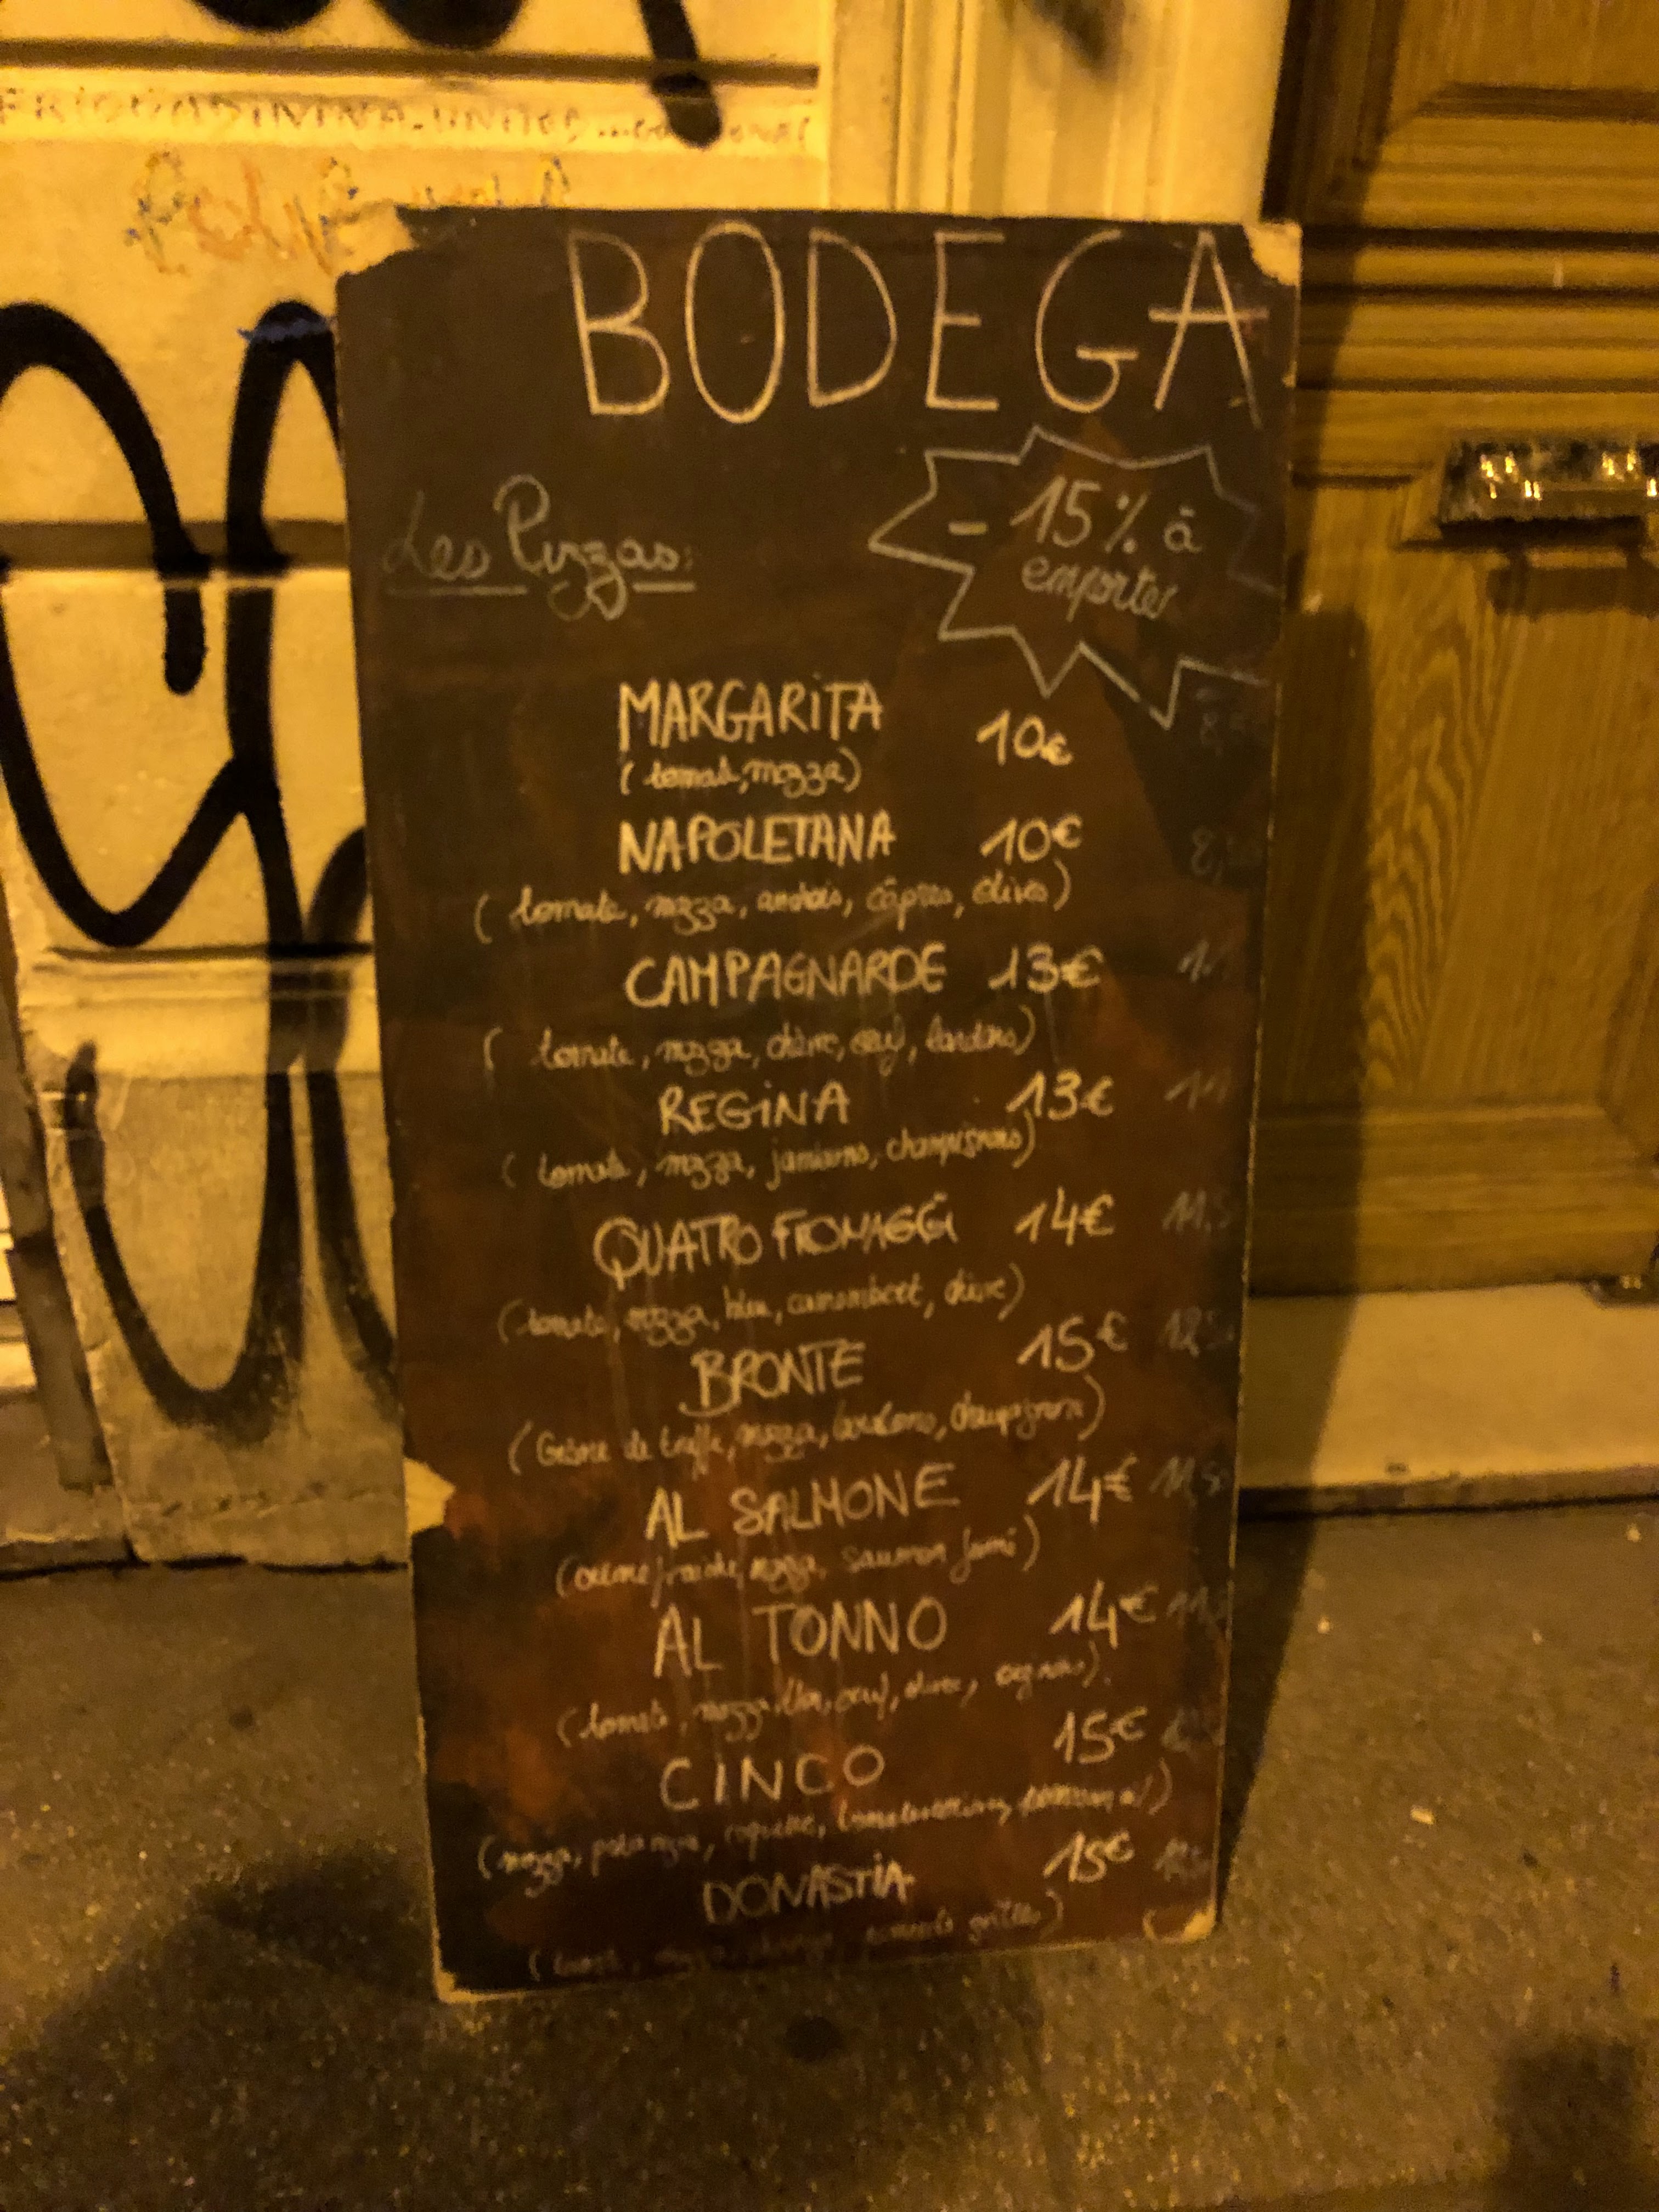 BODEGA
Les Pizzas:
- 15% à
emporter
MARGARITA 10€
(tomate, mozza)
NAPOLETANA 10€
(tomate, mozza, anchois, câpres, olives)
CAMPAGNARDE 13€
(tomate, mozza, chèvre, œuf, lardons)
REGINA 13€
(tomate, mozza, jambons, champignons)
QUATRO FROMAGGI 14€
(tomate, mozza, bleu, camembert, olive)
BRONTE 15€
(Crème de truffe, mozza, lardons, champignons)
AL SALMONE 14€
(crème fraiche, mozza, saumon fumé)
AL TONNO 14€
(tomate, mozza, thon, œuf, olive, oignons)
CINCO 15€
(mozza, roquette,
DONASTIA 15€